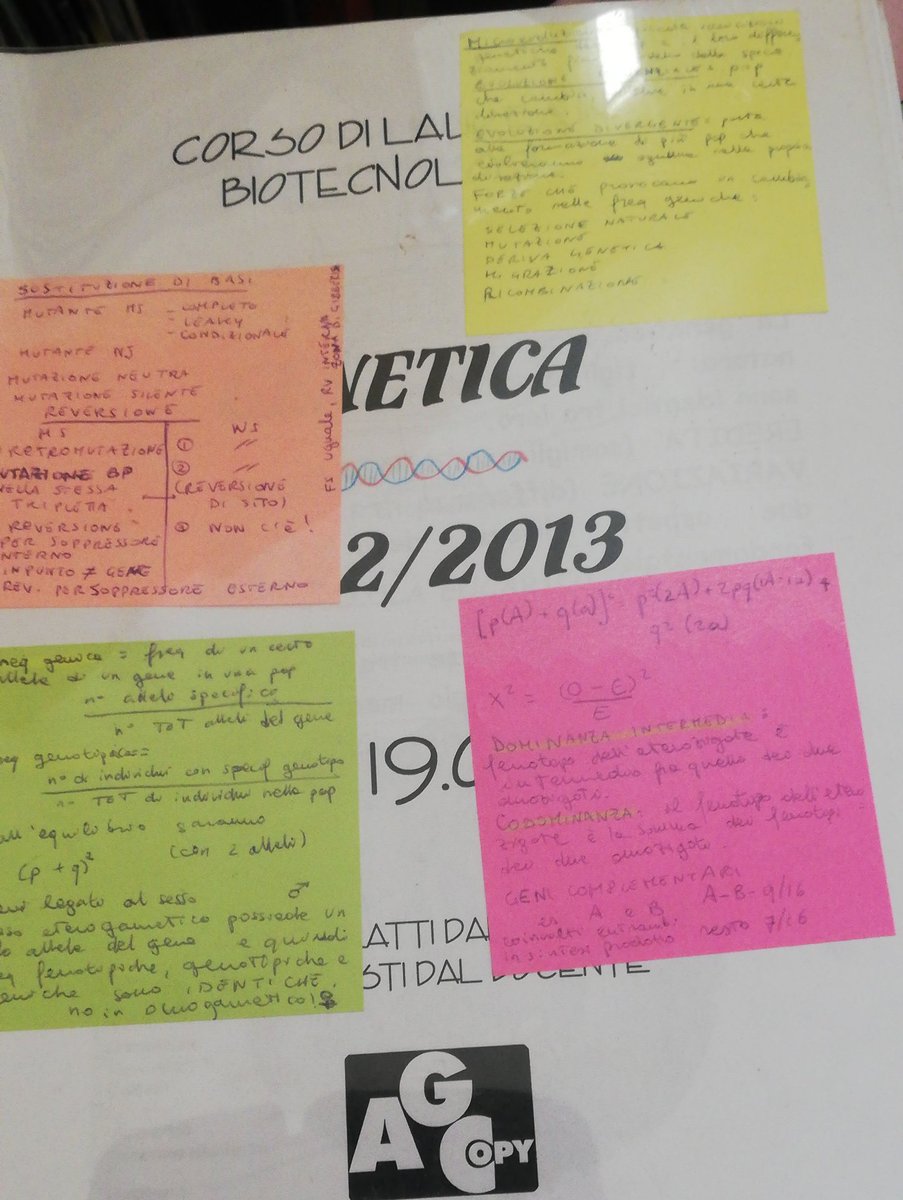 CORSO DI LAU
BIOTECNOL
NETICA
2/2013
19.0
ATTI DA
STI DAL DOCENTE
AG COPY
genetiche
EVOLUZIONE
pap
che cambia in una certa
direzione.
EVOLUZIONE DIVERGENTE: porta
alla formazione di più pop che
nella propria
direzione.
FORZE CHE provocano un cambia
mento nelle freq geniche:
SELEZIONE NATURALE
MUTAZIONE
DERIVA GENETICA
MIGRAZIONE
RICOMBINAZIONE
SOSTITUZIONE DI BASI
MUTANTE MS - COMPLETO
- LEAKY
- CONDIZIONALE
MUTANTE NS
MUTAZIONE NEUTRA
MUTAZIONE SILENTE
REVERSIONE
MS NS
RETROMUTAZIONE ① "
UTAZIONE BP ② "
NELLA STESSA (REVERSIONE
TRIPLETTA DI SITO)
REVERSIONE NON C'È!
PER SOPPRESSORE
INTERNO
IN PUNTO ≠ GENE
REV. PER SOPPRESSORE ESTERNO
FS uguale, RV INTERNA
req genica = freq di un certo
allele di un gene in una pop
n° allele specifico
n° TOT alleli del gene
req genotipica=
n° di individui con specif genotipo
n° TOT di individui nella pop
all'equilibrio saranno
(p + q)² (con 2 alleli)
legato al sesso ♂
sso eterogametico possiede un
lo allele del gene e quindi
eq fenotipiche, genotipiche e
eniche sono IDENTICHE.
no in omogametico!
[p(A) + q(a)]² = p²(2A) + 2pq(1A·1a) +
q²(2a)
X² = (O - E)²
E
DOMINANZA INTERMEDIA:
fenotipo dell'eterozigote è
intermedio fra quello dei due
omozigoti.
CODOMINANZA: il fenotipo dell'etero
zigote è la somma dei fenotipi
dei due omozigoti.
GENI COMPLEMENTARI
es A e B A-B- 9/16
coinvolti entrambi resto 7/16
in sintesi prodotto